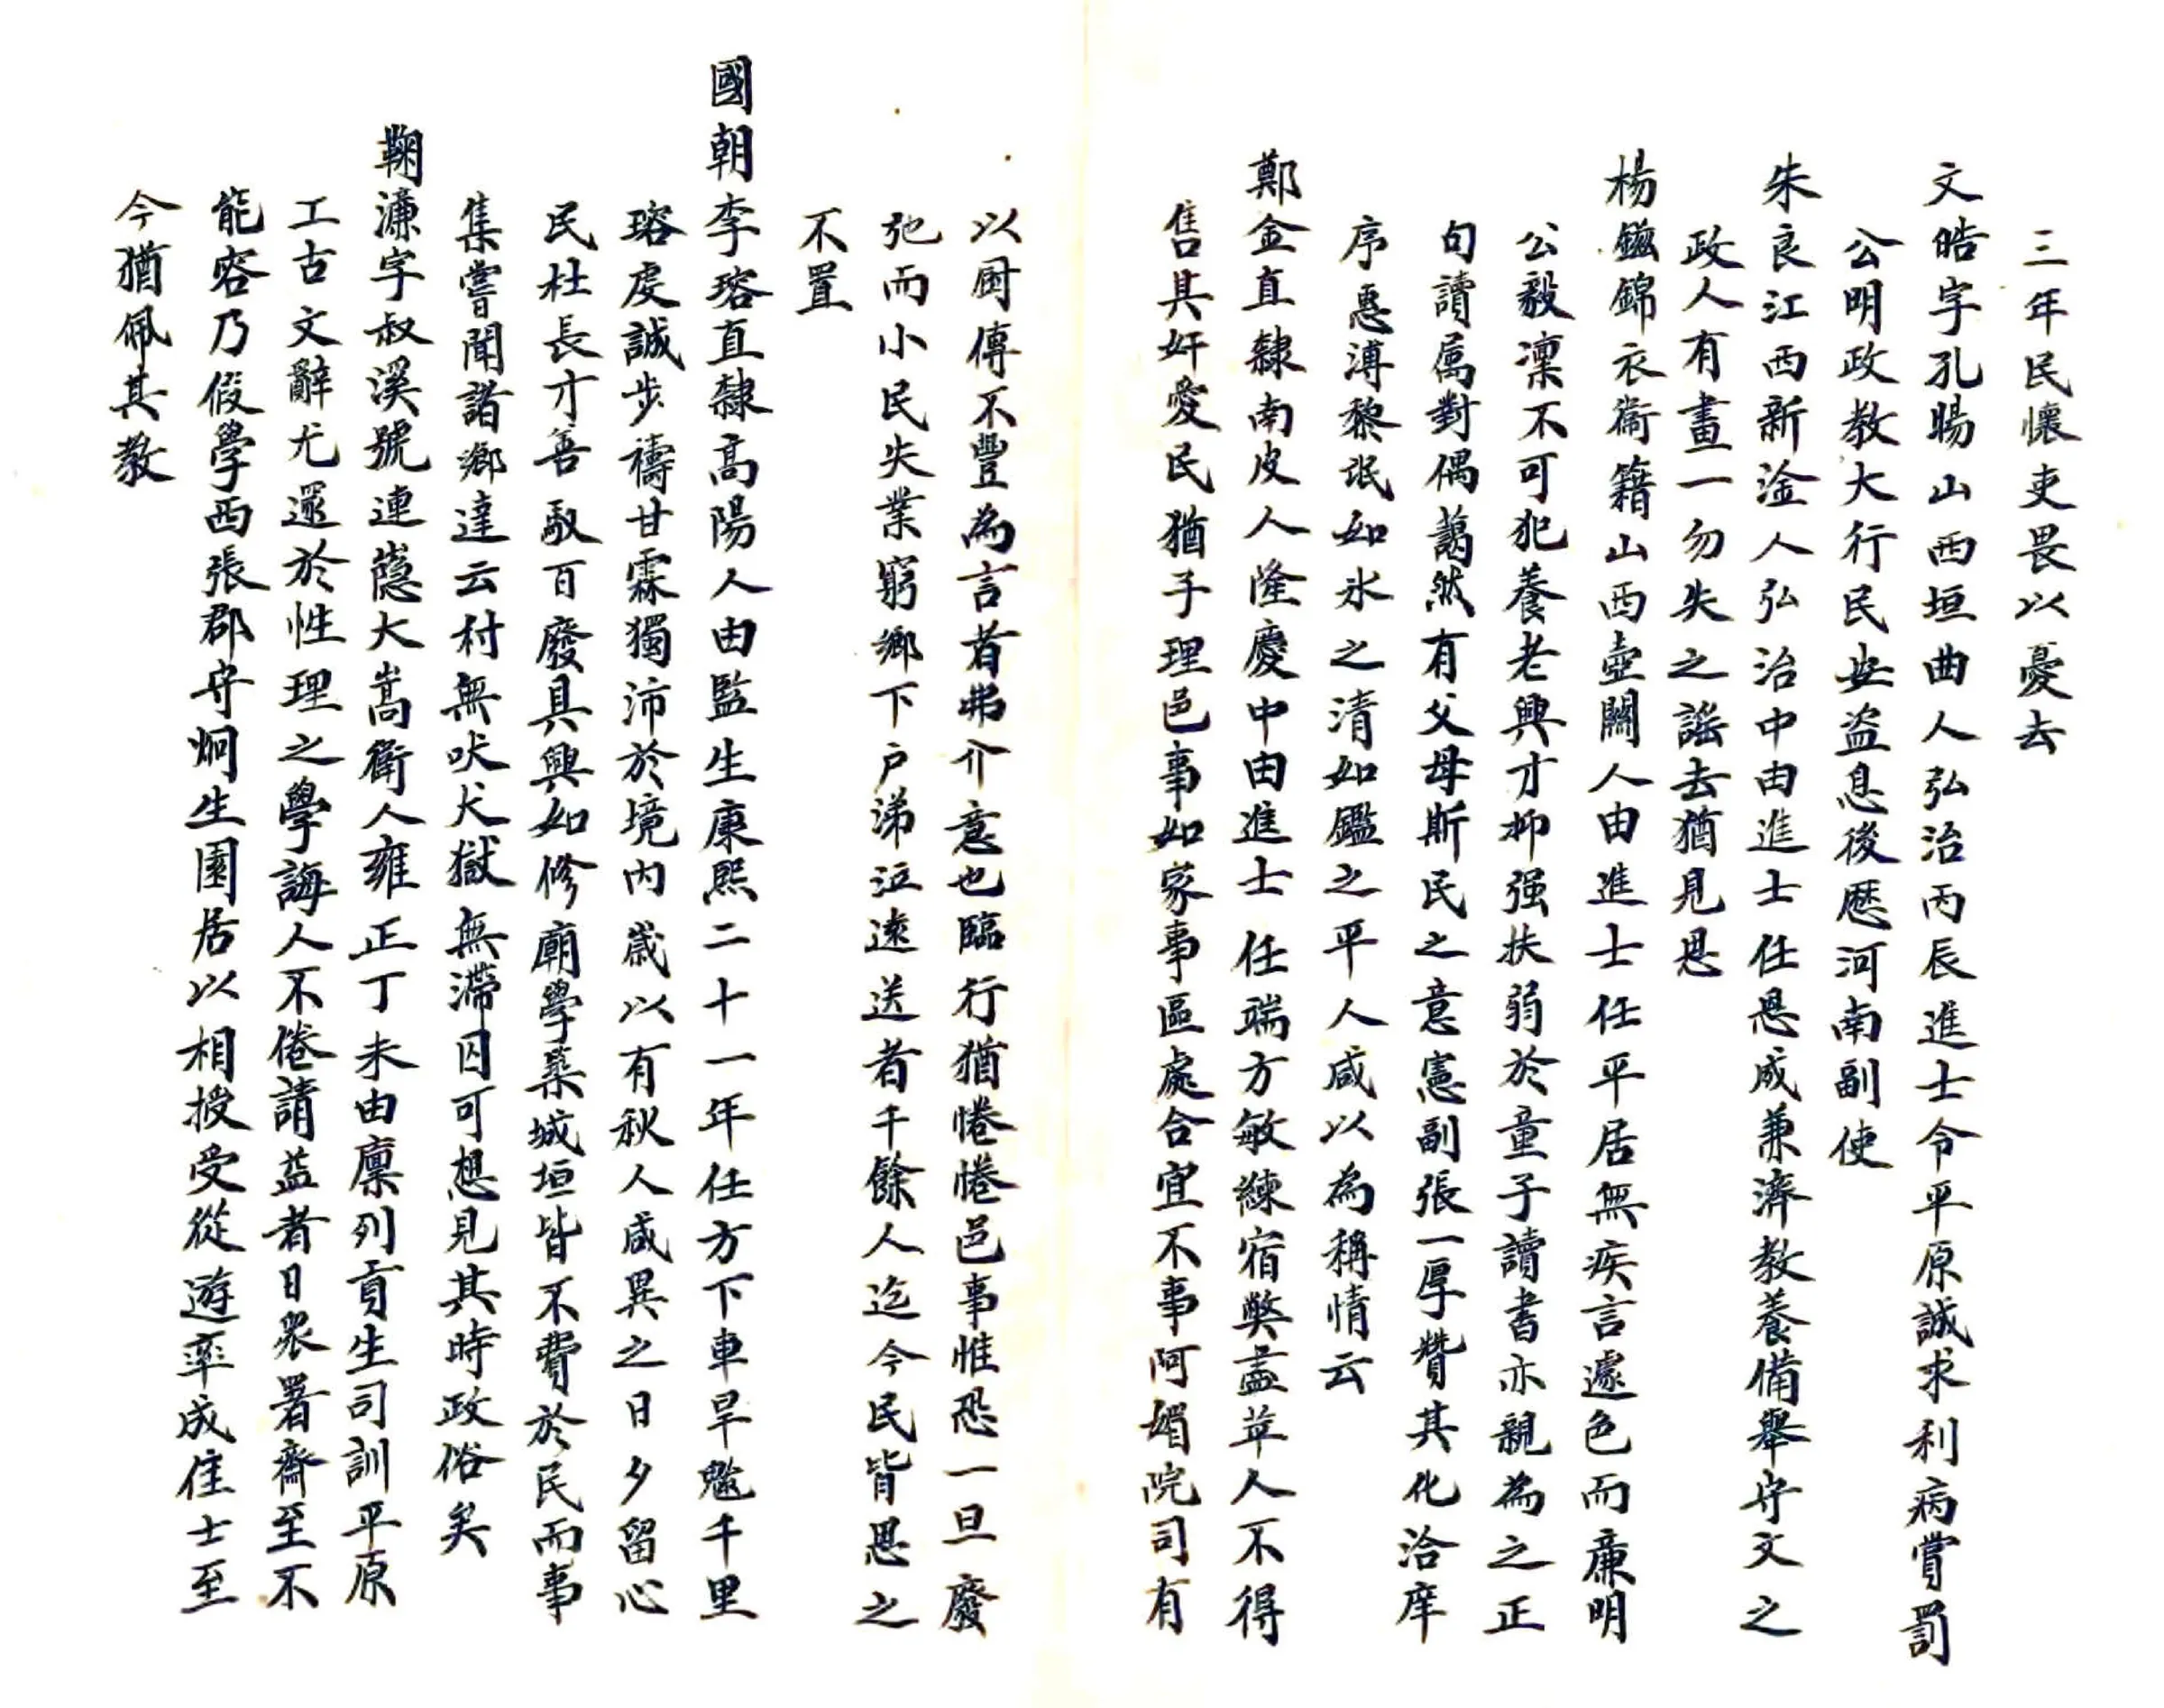 三年民懷吏畏以憂去
文皓字孔暘山西垣曲人弘治丙辰進士令平原誠求利病賞罰
公明政教大行民安盜息後歷河南副使
朱良江西新淦人弘治中由進士任恩威兼濟教養備舉守文之
政人有畫一勿失之謠去猶見思
楊鎡錦衣衛籍山西壺關人由進士任平居無疾言遽色而廉明
公毅凜不可犯養老興才抑强扶弱於童子讀書亦親為之正
句讀属對偶藹然有父母斯民之意憲副張一厚贊其化洽庠
序惠溥黎氓如氷之清如鑑之平人咸以為稱情云
鄭金直隸南皮人隆慶中由進士任端方敏練宿獘盡革人不得
售其奸愛民猶子理邑事如家事區處合宜不事阿媚院司有
以厨傳不豐為言者弗介意也臨行猶惓惓邑事惟恐一旦廢
弛而小民失業窮鄉下户涕泣遠送者千餘人迄今民皆思之
不置
國朝李瑢直隸高陽人由監生康熙二十一年任方下車旱魃千里
瑢虔誠步禱甘霖獨沛於境内歲以有秋人咸異之日夕留心
民杜長才善馭百廢具興如修廟學築城垣皆不費於民而事
集嘗聞諸鄉達云村無吠犬獄無滯囚可想見其時政俗矣
鞠濂字叔溪號連嶾大嵩衛人雍正丁未由廩列貢生司訓平原
工古文辭尤邃於性理之學誨人不倦請益者日衆署齋至不
能容乃假學西張郡守炯生園居以相授受從遊率成佳士至
今猶佩其教